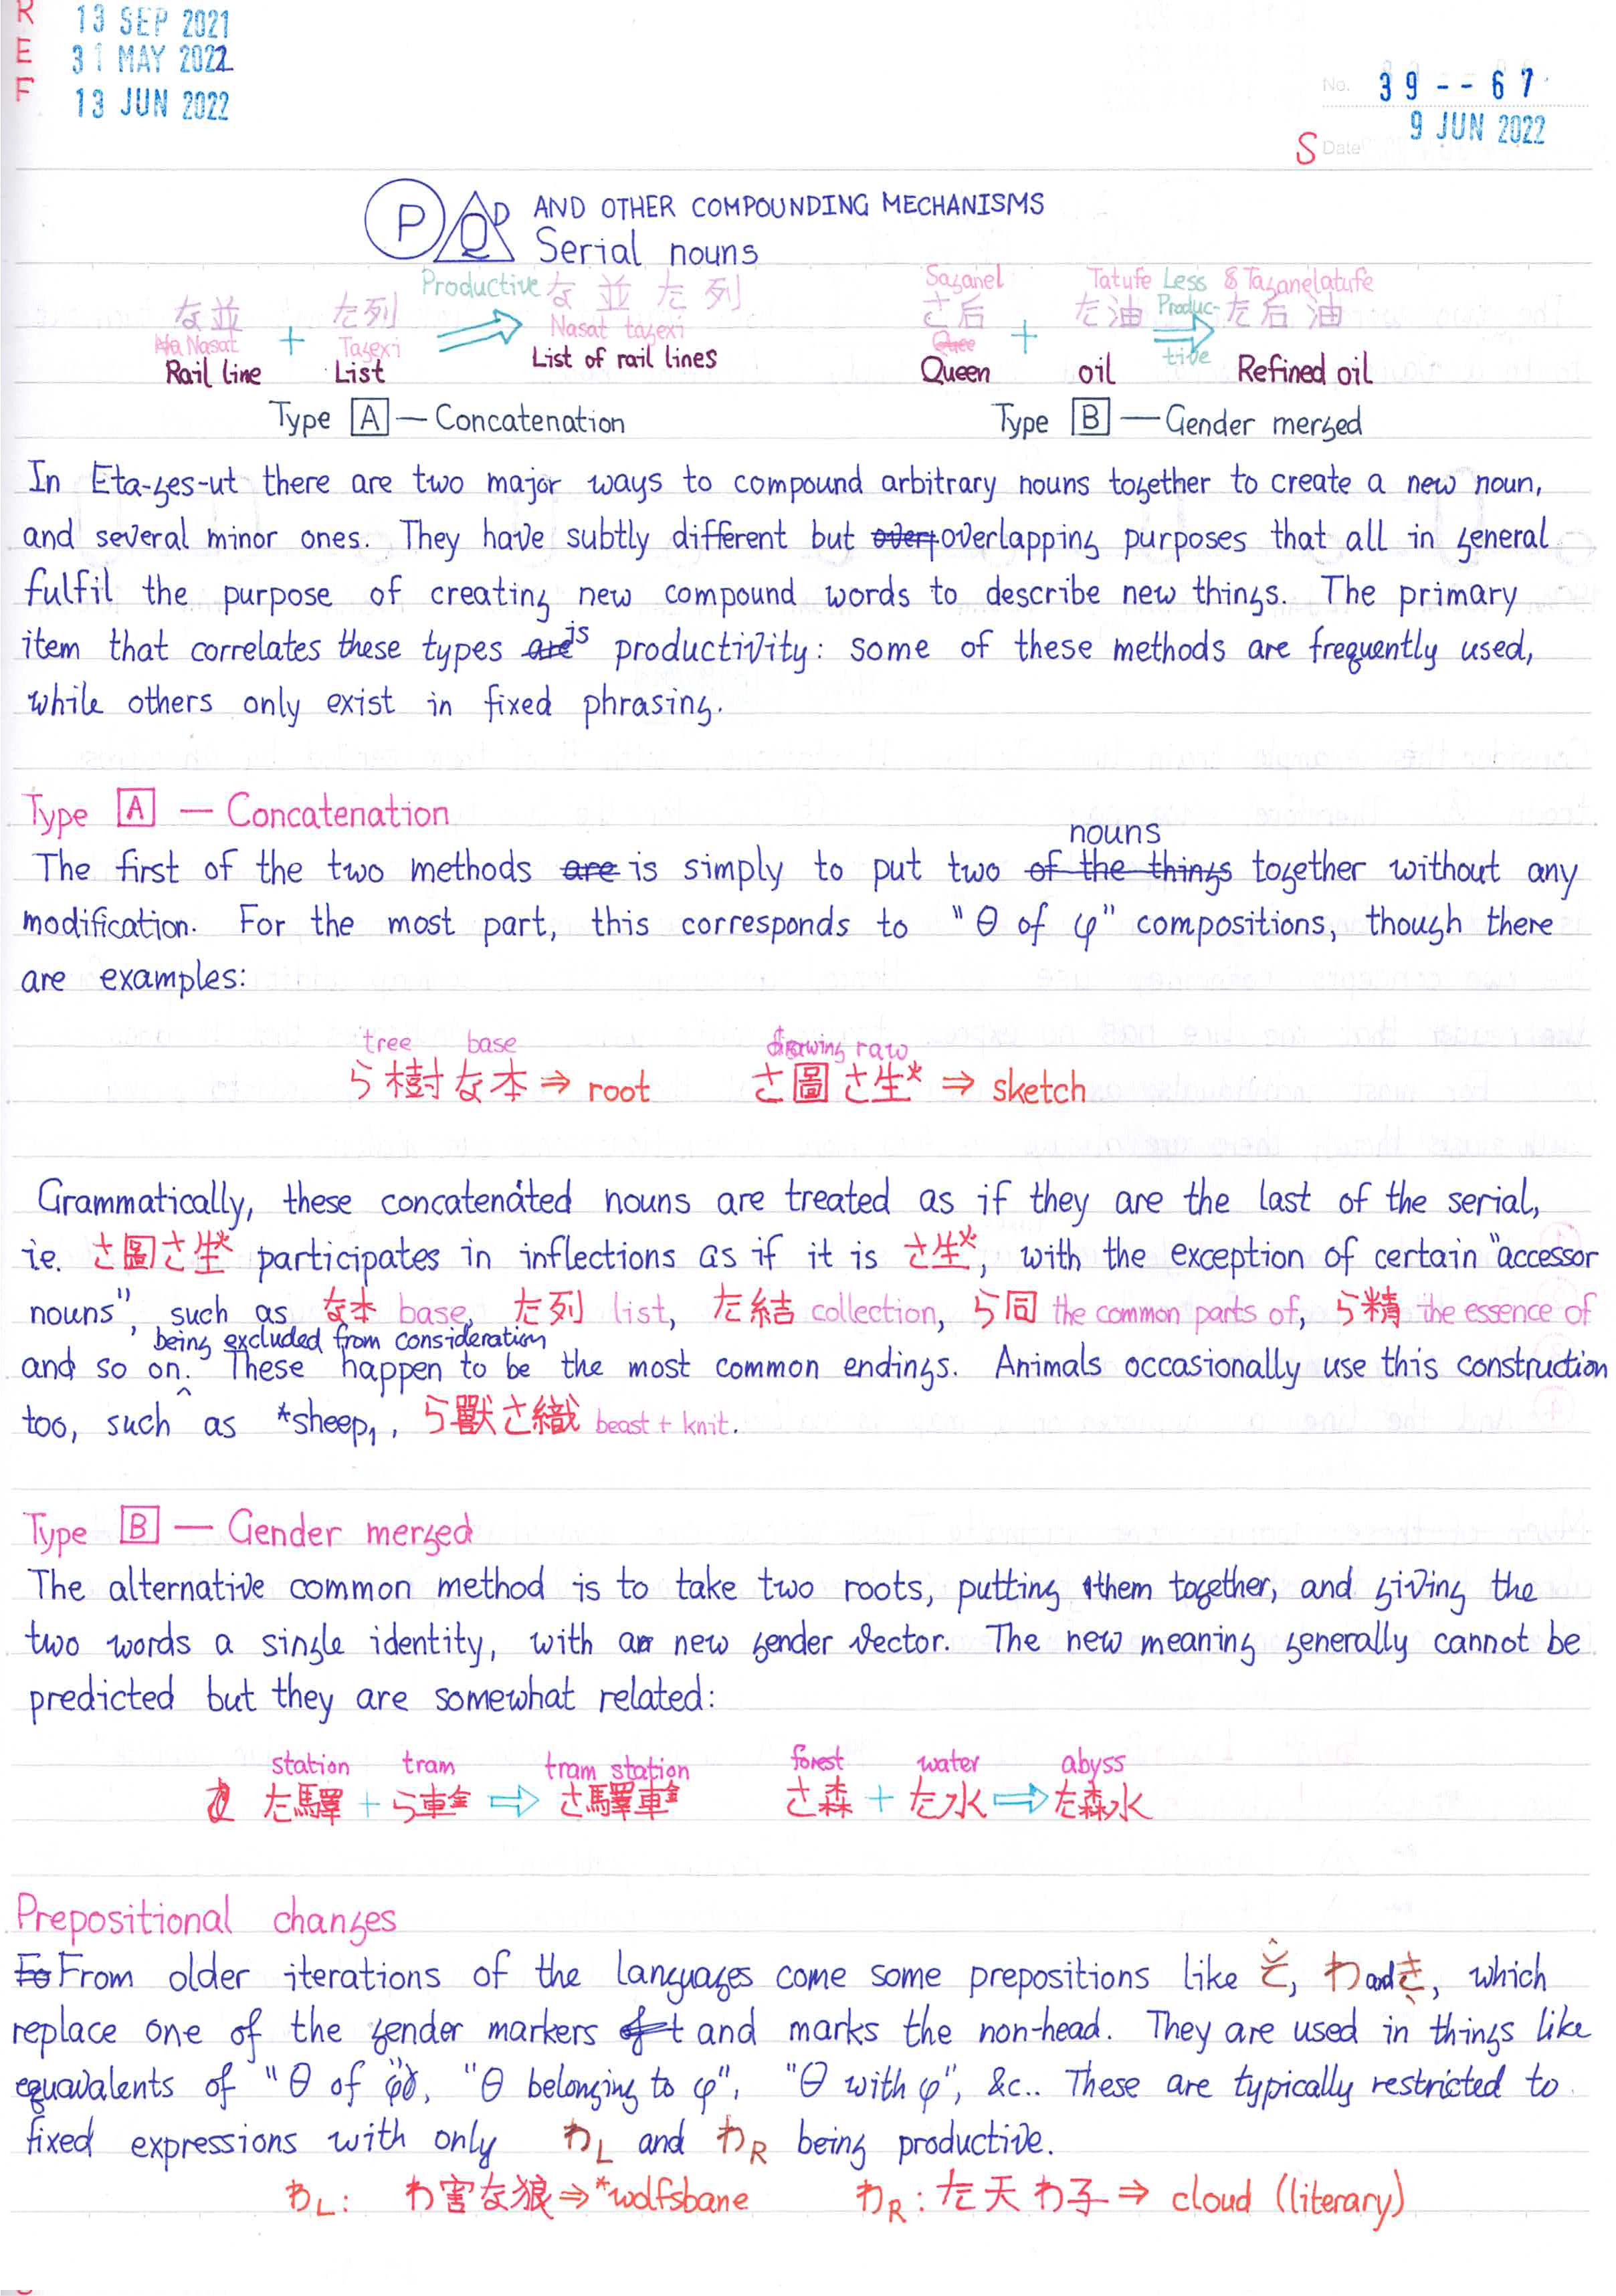 R
E
F
13 SEP 2021
31 MAY 2022
13 JUN 2022
No. 39--67
S Date 9 JUN 2022
P Q P AND OTHER COMPOUNDING MECHANISMS
Serial nouns
な並 + た列 Productive ⇒ な並た列
Nasat Tagexi Nasat tagexi
Rail line List List of rail lines
さ后 + た油 Less Productive ⇒ た后油
Saganel Tatufe Taganelatufe
Queen oil Refined oil
Type A — Concatenation Type B — Gender merged
In Eta-ges-ut there are two major ways to compound arbitrary nouns together to create a new noun,
and several minor ones. They have subtly different but overlapping purposes that all in general
fulfil the purpose of creating new compound words to describe new things. The primary
item that correlates these types is productivity: some of these methods are frequently used,
while others only exist in fixed phrasing.
Type A — Concatenation
The first of the two methods is simply to put two nouns together without any
modification. For the most part, this corresponds to "θ of φ" compositions, though there
are examples:
tree base drawing raw
ら樹な本 ⇒ root さ圖さ生* ⇒ sketch
Grammatically, these concatenated nouns are treated as if they are the last of the serial,
ie. さ圖さ生* participates in inflections as if it is さ生*, with the exception of certain "accessor
nouns", such as な本 base, た列 list, た結 collection, ら同 the common parts of, ら精 the essence of
and so on, being excluded from consideration. These happen to be the most common endings. Animals occasionally use this construction
too, such as *sheep₁, ら獸さ織 beast + knit.
Type B — Gender merged
The alternative common method is to take two roots, putting them together, and giving the
two words a single identity, with a new gender vector. The new meaning generally cannot be
predicted but they are somewhat related:
station tram tram station forest water abyss
た驛 + ら車金 ⇒ さ驛車金 さ森 + た水 ⇒ た森水
Prepositional changes
From older iterations of the languages come some prepositions like そ, わ and き, which
replace one of the gender markers and marks the non-head. They are used in things like
equavalents of "θ of φ", "θ belonging to φ", "θ with φ", &c.. These are typically restricted to
fixed expressions with only わL and わR being productive.
わL: わ害な狼 ⇒ *wolfsbane わR: た天わ子 ⇒ cloud (literary)